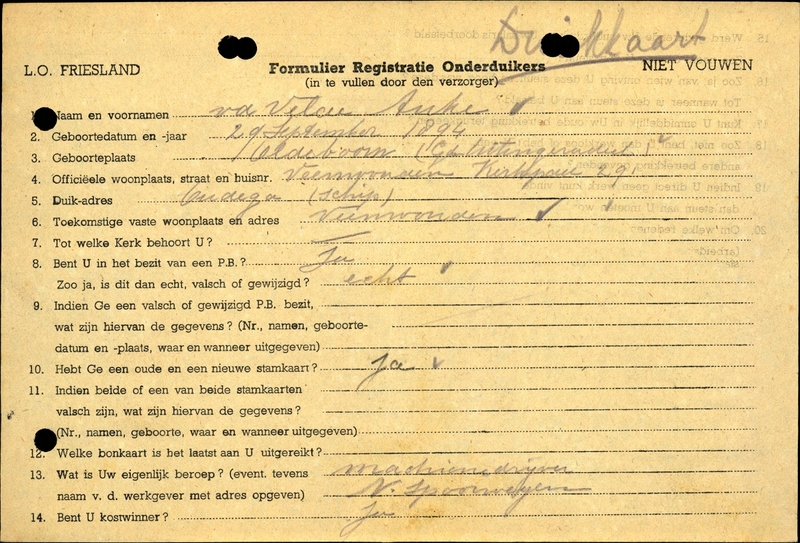 Duikkaart
L.O. FRIESLAND Formulier Registratie Onderduikers NIET VOUWEN
(in te vullen door den verzorger)
1. Naam en voornamen vd Velde Anke
2. Geboortedatum en -jaar 29 September 1894
3. Geboorteplaats Oldeboorn
4. Officiële woonplaats, straat en huisnr. Veenwouden 29
5. Duik-adres Oudega (Schip)
6. Toekomstige vaste woonplaats en adres Veenwouden
7. Tot welke Kerk behoort U? —
8. Bent U in het bezit van een P.B.? Ja
Zoo ja, is dit dan echt, valsch of gewijzigd? echt
9. Indien Ge een valsch of gewijzigd P.B. bezit,
wat zijn hiervan de gegevens? (Nr., namen, geboorte-
datum en -plaats, waar en wanneer uitgegeven)
10. Hebt Ge een oude en een nieuwe stamkaart? Ja
11. Indien beide of een van beide stamkaarten
valsch zijn, wat zijn hiervan de gegevens?
(Nr., namen, geboorte, waar en wanneer uitgegeven)
12. Welke bonkaart is het laatst aan U uitgereikt?
13. Wat is Uw eigenlijk beroep? (event. tevens machinedrijver
naam v. d. werkgever met adres opgeven) N. Spoorwegen
14. Bent U kostwinner? Ja